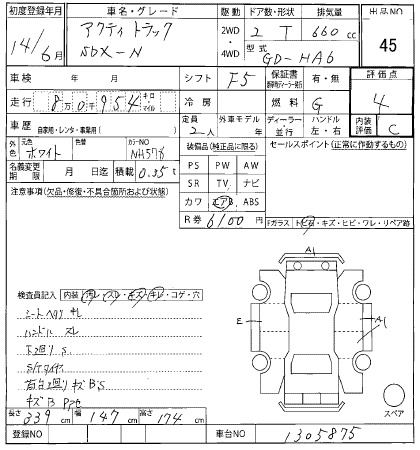 初度登録年月 車名・グレード 駆動 ドア数・形状 排気量 出品NO
14/6月 アクティ トラック SDX-N 2WD・4WD 2 T 660cc 45
型式 GD-HA6
車検 年 月 シフト F5 保証書 有・無 評価点
走行 8万0千954 キロ・マイル 冷房 燃料 G 4
車歴 自家用・レンタ・事業用( ) 定員 2人 外車モデル 年 ディーラー・並行 ハンドル 左・右 内装評価 C
外色 元色 ホワイト 色替 カラーNO NH578 装備品(純正品に限る) セールスポイント(正常に作動するもの)
名義変更期限 月 日迄 積載 0.35t PS PW AW
注意事項(欠品・修復・不具合箇所および状態) SR TV ナビ
カワ エアB ABS
R券 6100円 Fガラス トビ石・キズ・ヒビ・ワレ・リペア跡
A1
検査員記入 内装(汚レ・スレ・キズ・キレ・コゲ・穴
シートヘタリ キレ E A1
ハンドル スレ
下回り S
S/Tタイヤ
荷台回り キズ B S
キズ B アワセ スペア
長さ 339cm 幅 147cm 高さ 174cm
登録NO 車台NO 1305875